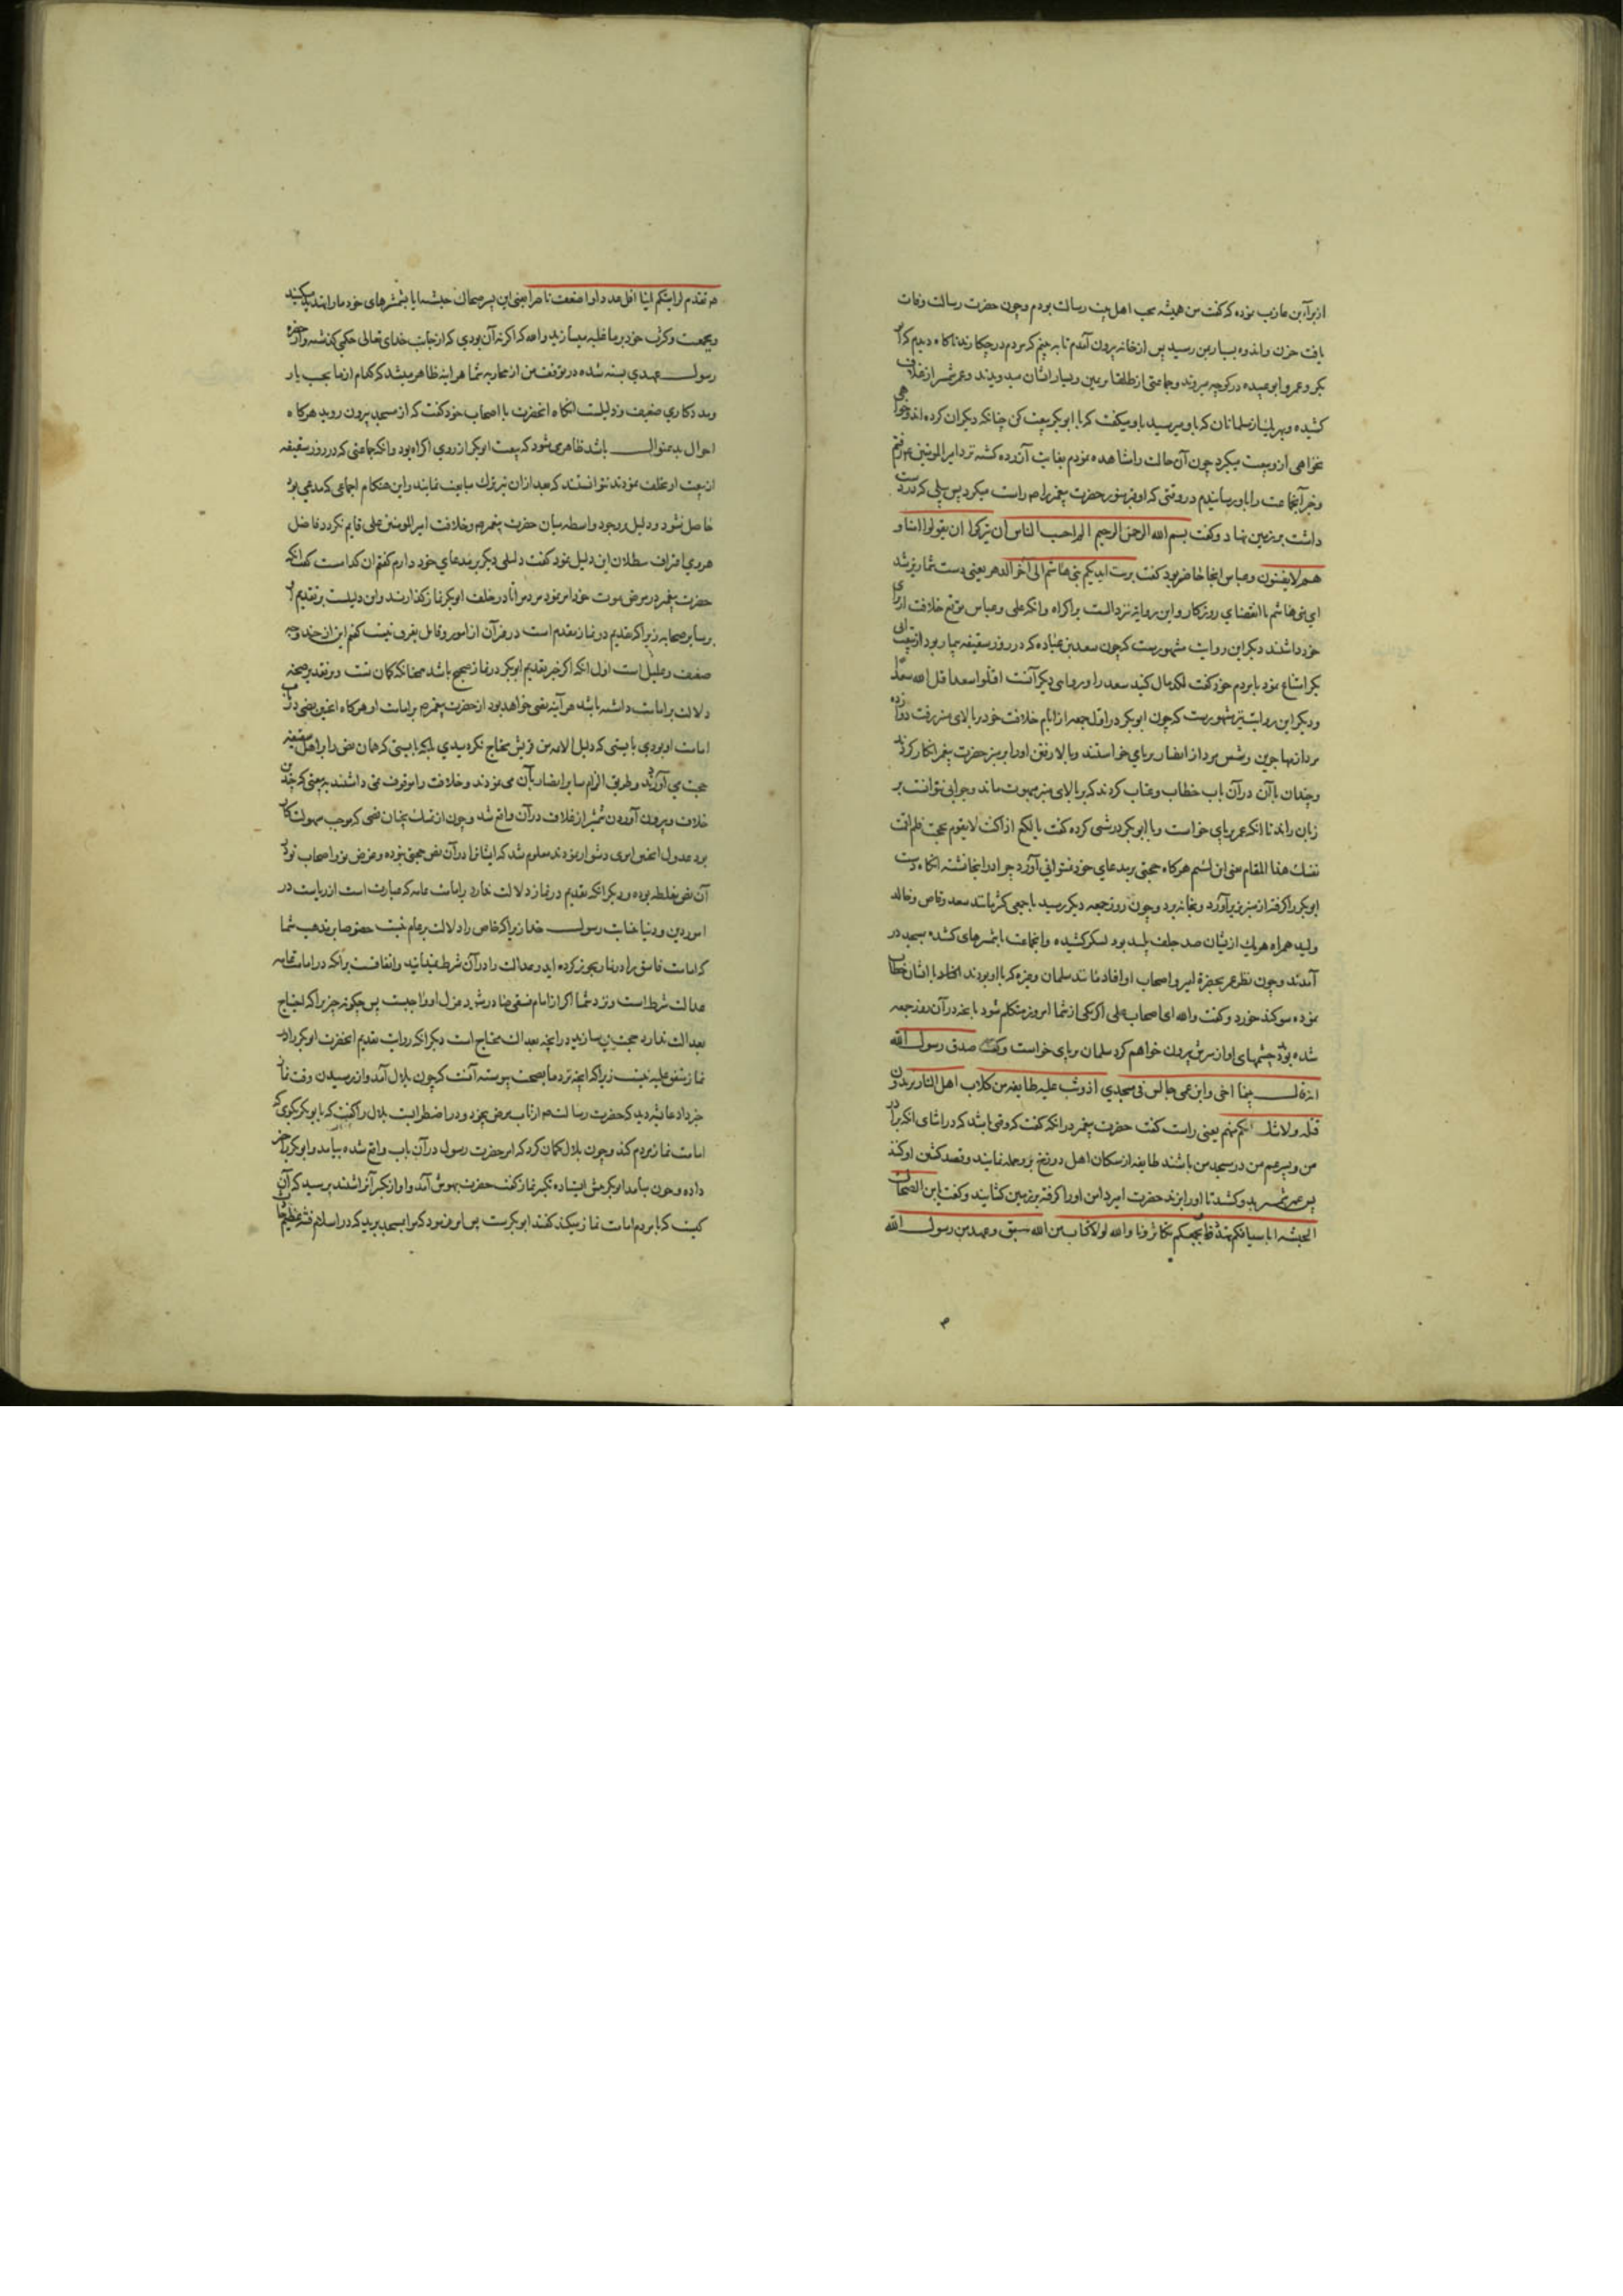 از براء بن عازب نموده که گفت من همیشه محب اهل بیت رسالت بودم و چون حضرت رسالت وفات
یافت حزن و اندوه بسیار بمن رسید پس از خانه بیرون آمدم تا به بینم که مردم در چکارند ناگاه دیدم که ابو
بکر و عمر و ابو عبیده در کوچه میروند و جماعتی از طلقا بر یمین و یسار ایشان میدویدند و عمر شمشیر از غلاف
کشیده و بهر یک از مسلمانان که باو میرسید باو میگفت که با ابوبکر بیعت کن چنانکه دیگران کرده اند و خواهی
نخواهی ازو بیعت میگرفت چون آن حالت را مشاهده نمودم بغایت آزرده گشته نزد امیر المومنین رفتم
و خبر آنجماعت را باو رسانیدم در وقتی که او قبر منور حضرت پیغمبر را راست میکرد پس بیلی که در دست
داشت بر زمین نهاد و گفت بسم الله الرحمن الرحیم الم احسب الناس ان یترکوا ان یقولوا امنا و
هم لا یفتنون و عباس اینجا حاضر بود گفت تربت ایدیکم بنی هاشم الی آخر الدهر یعنی دست شما ریز شد
ای بنی هاشم تا انقضای روزگار و این روایة نیز دالست بر اکراه و آنکه علی و عباس توقع خلافت از برای
خود داشتند دیگر این روایت مشهورست که چون سعد بن عباده که در روز سقیفه بیمار بود از بیعت ابی
بکر امتناع نمود با مردم خود گفت لگدمال کنید سعد را و روایی دیگر آنست اقتلوا سعدا قتل الله سعدا
و دیگر این روایت نیز مشهورست که چون ابوبکر در اول جمعه از ایام خلافت خود بر بالای منبر رفت دوازده
مرد از مهاجرین و شش مرد از انصار بر پای خواستند و بالا رفتن او را بر منبر حضرت پیغمبر انکار کردند
و چندان با آن در آن باب خطاب و عتاب کردند که بر بالای منبر مبهوت ماند و جوابی نتوانست بر
زبان راند تا آنکه عمر بر پای خواست و با ابوبکر درشتی کرده گفت یا لکع اذا کنت لا تقوم بحجة فلم اقمت
نفسک هذا المقام یعنی ای لئیم هرگاه حجتی بر مدعای خود نمیتوانی آورد چرا در اینجا نشستهٔ آنگاه دست
ابوبکر را گرفته از منبر بزیر آورد و بخانه برد و چون روز جمعه دیگر رسید با جمعی کثیر مانند سعد وقاص و خالد
ولید همراه هر یک ازیشان صد حلف پلید بود لشکر کشیده و آنجماعت با شمشیرهای کشیده بمسجد در
آمدند و چون نظر عمر بحضرة امیر و اصحاب او افتاد مانند سلمان و غیره که با او بودند آنجا با ایشان خطاب
نموده سوگند خورد و گفت والله ای اصحاب علی اگر یکی از شما امروز متکلم شود بانچه در آن روز جمعه
شده بود چشمهای او از سرش بیرون خواهم کرد سلمان بر پای خواست و گفت صدق رسول الله
انه قال بینا اخی و ابن عمی جالس فی مسجدی اذ وثب علیه طایفه من کلاب اهل النار یریدون
قتله ولا شک انکم منهم یعنی راست گفت حضرت پیغمبر در آنکه گفت که وقتی باشد که در اثنای آنکه برادر
من و پسر عم من در مسجد من باشند طایفه از سگان اهل دوزخ برو حمله نمایند و قصد کشتن او کنند
پس عمر شمشیر بدو کشید تا او را بزند حضرت امیر دامن او را گرفته بر زمین کشانید و گفت یا ابن الصحاک
الحبشیه ابا سیافکم تهددنا و بجمعکم تکاثرونا والله لولا کتاب من الله سبق و عهد من رسول الله
هم تقدم لرایتکم اینا اقل عددا و اضعف ناصرا یعنی ای پسر صحاک حبشیه آیا بشمشیرهای خود ما را تهدید میکنید
و بجمعیت و کثرت خود بر ما غلبه میسازید والله که اگر نه آن بودی که از جانب خدای تعالی حکمی گذشته و از حضرة
رسول عهدی بسته شده در توقف من از محاربه شما هر آینه ظاهر میشد که کدام از ما بحسب یار
و مددکاری ضعیف و ذلیلست آنگاه آنحضرت با اصحاب خود گفت که از مسجد بیرون روید هرگاه
احوال بدینمنوال باشد ظاهر میشود که بیعت ابوبکر از روی اکراه بود و آنکه جماعتی که در روز سقیفه
از بیعت او تخلف نمودند نتوانستند که بعد از آن نیز ترک مبایعت نمایند و این هنگام اجماعی که مدعی بود
حاصل نشود و دلیل بر وجود واسطه میان حضرت پیغمبر و خلافت امیر المومنین علی قایم نگردد فاضل
هروی اعتراف ببطلان این دلیل نمود گفت دلیلی دیگر بر مدعای خود دارم گفتم آن کدامست گفت آنکه
حضرت پیغمبر در مرض موت خود امر نمود مردمانرا تا در خلف ابوبکر نماز گذارند و این دلیلست بر تقدیم او
بر سایر صحابه زیرا که تقدیم در نماز مقدم است در غیر آن از امور و قایل بفرق نیست گفتم این از چند وجه
ضعیف و علیل است اول آنکه اگر خبر تقدیم ابوبکر در نماز صحیح باشد همچنانکه گمان تست و بر تقدیر صحته
دلالت بر امامت داشته باشد هر آینه نصی خواهد بود از حضرت پیغمبر بر امامت او هرگاه اینچنین نصی در باب
امامت او بودی بایستی که دلیل الائمه من قریش محتاج نگردیدی بلکه بایستی که همان نص را بر اهل سقیفه
حجت می آوردند و طریق الزام سایر انصار بآن می نمودند و خلافت را موقوف نمی داشتند به بیعتی که چندین
خلاف و بیرون آوردن شمشیر از غلاف در آن واقع شد و چون از تمسک بچنان نصی که موجب سهولت کار
بود عدول اینچنین امری دشوار نمودند معلوم شد که ایشانرا در آن نص حجتی نبوده و غرض نزد اصحاب تو در
آن نص بغلطه بوده و دیگر آنکه تقدیم در نماز دلالت ندارد بر امامت عامه که عبارت است از ریاست در
امور دین و دنیا بنیابت رسول خدا زیرا که خاص را دلالت بر عام نیست خصوصا بر مذهب شما
که امامت فاسق را در نماز تجویز کرده اید و عدالت را در آن شرط نمیدانید و اتفاقست بر آنکه در امامت عامه
عدالت شرط است و نزد شما اگر از امام فسقی صادر شود عزل او واجبست پس چگونه چیزیرا که احتیاج
بعدالت ندارد حجت میسازید در آنچه بعدالت محتاج است دیگر آنکه روایت تقدیم آنحضرت ابوبکر را در
نماز متفق علیه نیست زیرا که آنچه نزد ما بصحت پیوسته آنست که چون بلال آمد و از رسیدن وقت نماز
خبر داد عایشه دید که حضرت رسالت هم از تاب مرض بیخود و در اضطرابست بلال را گفت که با ابوبکر بگوی که
امامت نماز مردم کند و چون بلال گمان کرد که امر حضرت رسول در آن باب واقع شده بیامد و ابوبکر را خبر
داده و چون بیامد ابوبکر پیش ایستاده تکبیر نماز گفت حضرت بهوش آمد و آواز تکبیر آنرا شنید پرسید که آن
کیست که با مردم امامت نماز میکند گفتند ابوبکرست پس امر فرمود که مرا بمسجد برید که در اسلام فتنه عظیم حادث